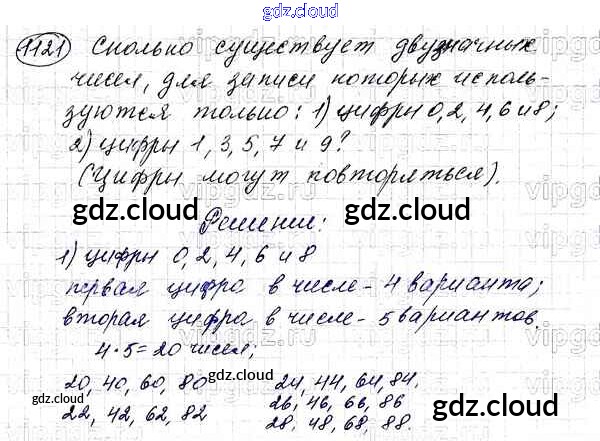 gdz.cloud
1121 Сколько существует двузначных
чисел, для записи которых исполь-
зуются только: 1) цифры 0, 2, 4, 6 и 8;
2) цифры 1, 3, 5, 7 и 9?
(Цифры могут повторяться).
gdz.cloud gdz.cloud
Решение:
1) цифры 0, 2, 4, 6 и 8
первая цифра в числе - 4 варианта;
вторая цифра в числе - 5 вариантов.
4·5=20 чисел;
20, 40, 60, 80 24, 44, 64, 84,
gdz.cloud 26, 46, 66, 86 gdz.cloud
22, 42, 62, 82 28, 48, 68, 88.
gdz.cloud